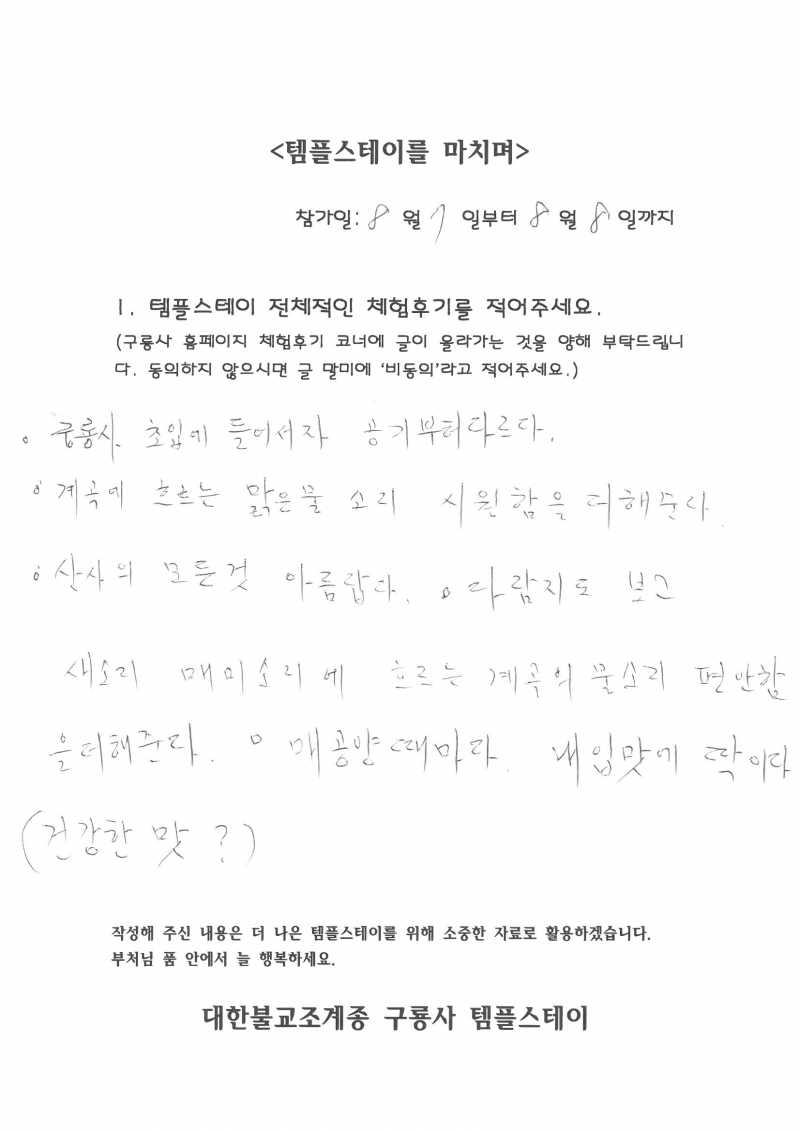 <템플스테이를 마치며>
참가일: 8 월 7 일부터 8 월 8 일까지
1. 템플스테이 전체적인 체험후기를 적어주세요.
(구룡사 홈페이지 체험후기 코너에 글이 올라가는 것을 양해 부탁드립니
다. 동의하지 않으시면 글 말미에 '비동의'라고 적어주세요.)
◦ 구룡사 초입에 들어서자 공기부터다르다.
◦ 계곡에 흐르는 맑은물 소리 시원함을더해준다.
◦ 산사의 모든것 아름답다. ◦ 다람지도 보고
새소리 매미소리에 흐르는 계곡의물소리 편안함
을더해준다. ◦ 매공양때마다. 내입맛에 딱이다
(건강한 맛 ?)
작성해 주신 내용은 더 나은 템플스테이를 위해 소중한 자료로 활용하겠습니다.
부처님 품 안에서 늘 행복하세요.
대한불교조계종 구룡사 템플스테이